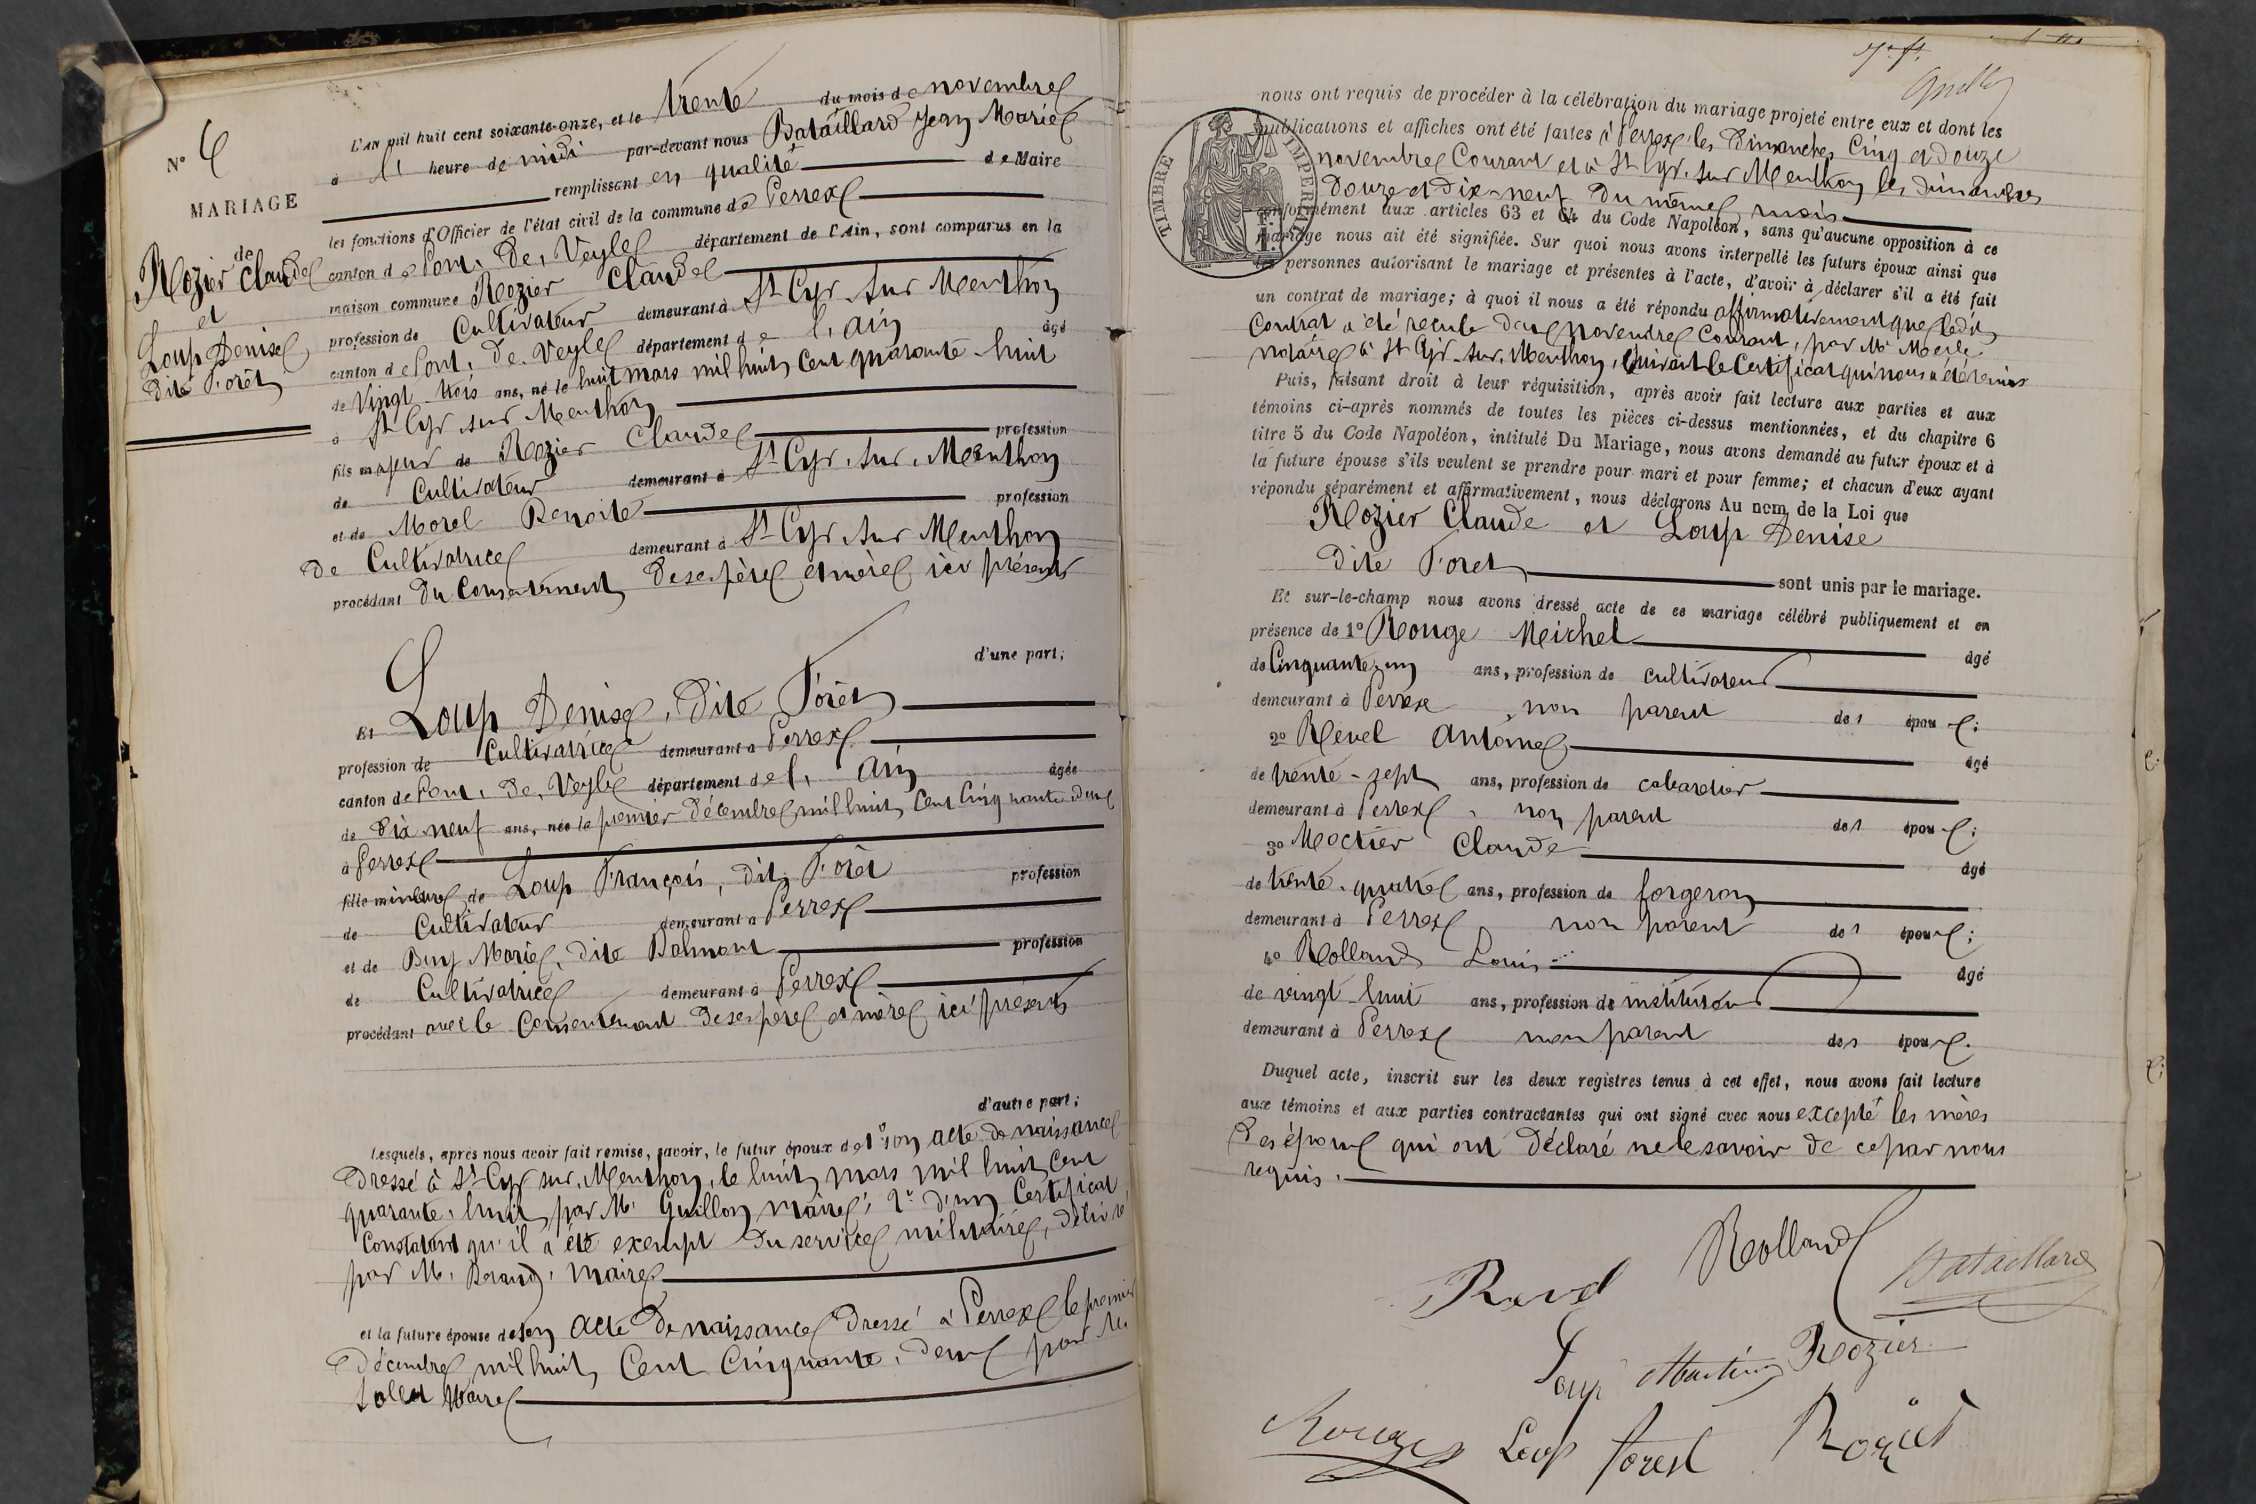 N° 6
MARIAGE
de
Rozier Claude
et
Loup Denise
dite Forêt
L'AN mil huit cent soixante-onze, et le trente du mois de novembre
à 1 heure de midi par-devant nous Bataillard Jean Marie
remplissant en qualité de Maire
les fonctions d'Officier de l'état civil de la commune de Perrex
canton de Pont. De. Veyle département de l'Ain, sont comparus en la
maison commune Rozier Claude
profession de Cultivateur demeurant à St Cyr sur Menthon
canton de Pont. de. Veyle département de l'Ain âgé
de vingt-trois ans, né le huit mars mil huit cent quarante-huit
à St Cyr sur Menthon
fils majeur de Rozier Claude profession
de Cultivateur demeurant à St Cyr. sur. Menthon
et de Morel Benoite profession
de Cultivatrice demeurant à St Cyr sur Menthon
procédant du consentement de ses père et mère ici présents
d'une part;
Et Loup Denise, dite Forêt
profession de Cultivatrice demeurant à Perrex
canton de Pont. de. Veyle département de l'Ain âgée
de dix neuf ans, née le premier décembre mil huit cent cinquante deux
à Perrex
fille mineure de Loup François, dit Forêt profession
de Cultivateur demeurant à Perrex
et de Buy Marie, dite Balmont profession
de Cultivatrice demeurant à Perrex
procédant avec le consentement de ses père et mère ici présents
d'autre part;
Lesquels, après nous avoir fait remise, savoir, le futur époux de 1° son acte de naissance
dressé à St Cyr sur. Menthon, le huit mars mil huit cent
quarante. huit par M. Guillon maire; 2° d'un Certificat
constatant qu'il a été exempt du service militaire, délivré
par M. Beraud, maire
et la future épouse de son acte de naissance dressé à Perrex le premier
décembre mil huit cent cinquante. deux par M.
maire
nous ont requis de procéder à la célébration du mariage projeté entre eux et dont les
publications et affiches ont été faites à Perrex les dimanches cinq et douze
novembre courant et à St Cyr. sur Menthon les dimanches
douze et dix-neuf du même mois
conformément aux articles 63 et 64 du Code Napoléon, sans qu'aucune opposition à ce
mariage nous ait été signifiée. Sur quoi nous avons interpellé les futurs époux ainsi que
les personnes autorisant le mariage et présentes à l'acte, d'avoir à déclarer s'il a été fait
un contrat de mariage; à quoi il nous a été répondu affirmativement que ledit
contrat a été reçu le deux novembre courant, par Me Merle
notaire à St Cyr-sur. Menthon, suivant le certificat qui nous a été remis
Puis, faisant droit à leur réquisition, après avoir fait lecture aux parties et aux
témoins ci-après nommés de toutes les pièces ci-dessus mentionnées, et du chapitre 6
titre 5 du Code Napoléon, intitulé Du Mariage, nous avons demandé au futur époux et à
la future épouse s'ils veulent se prendre pour mari et pour femme; et chacun d'eux ayant
répondu séparément et affirmativement, nous déclarons Au nom de la Loi que
Rozier Claude et Loup Denise
dite Foret sont unis par le mariage.
Et sur-le-champ nous avons dressé acte de ce mariage célébré publiquement et en
présence de 1° Rouge Michel âgé
de cinquante-un ans, profession de cultivateur
demeurant à Perrex, non parent des époux;
2° Revel Antoine âgé
de trente-sept ans, profession de cabaretier
demeurant à Perrex, non parent des époux;
3° Moctier Claude âgé
de trente-quatre ans, profession de forgeron
demeurant à Perrex non parent des époux;
4° Rolland Louis âgé
de vingt-huit ans, profession de instituteur
demeurant à Perrex non parent des époux.
Duquel acte, inscrit sur les deux registres tenus à cet effet, nous avons fait lecture
aux témoins et aux parties contractantes qui ont signé avec nous excepté les mères
des époux qui ont déclaré ne le savoir de ce par nous
requis.
TIMBRE IMPERIAL
Revel Rolland Bataillard
Loup Rozier
Rouge Loup forest Rozier